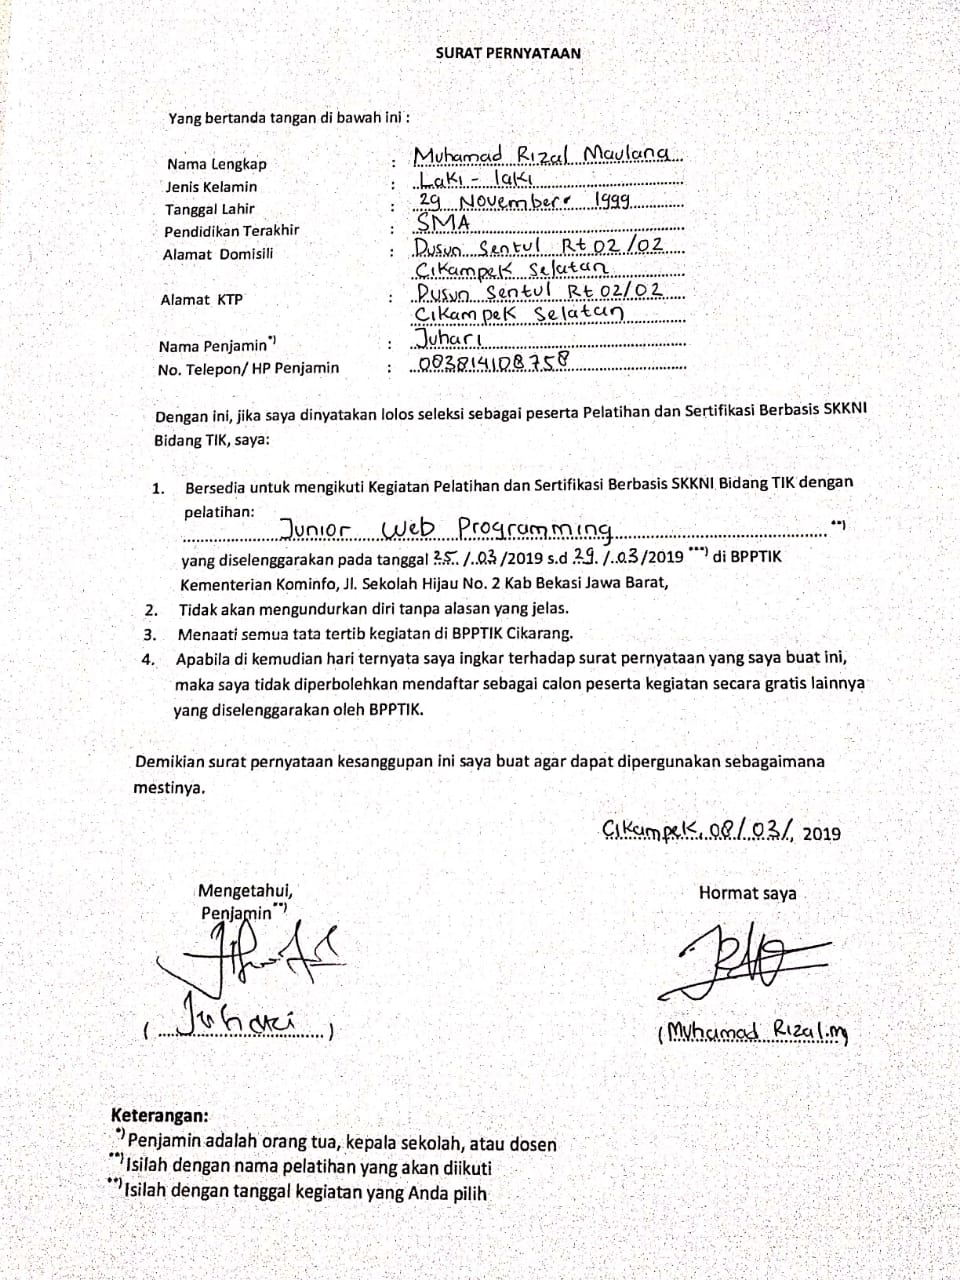 SURAT PERNYATAAN
Yang bertanda tangan di bawah ini :
Nama Lengkap : Muhamad Rizal Maulana
Jenis Kelamin : Laki - laki
Tanggal Lahir : 29 November 1999
Pendidikan Terakhir : SMA
Alamat Domisili : Dusun Sentul Rt 02/02
Cikampek Selatan
Alamat KTP : Dusun Sentul Rt 02/02
Cikampek Selatan
Nama Penjamin*) : Juhari
No. Telepon/ HP Penjamin : 083814108758
Dengan ini, jika saya dinyatakan lolos seleksi sebagai peserta Pelatihan dan Sertifikasi Berbasis SKKNI
Bidang TIK, saya:
1. Bersedia untuk mengikuti Kegiatan Pelatihan dan Sertifikasi Berbasis SKKNI Bidang TIK dengan
pelatihan:
Junior Web Programming **)
yang diselenggarakan pada tanggal 25/03/2019 s.d 29/03/2019 ***) di BPPTIK
Kementerian Kominfo, Jl. Sekolah Hijau No. 2 Kab Bekasi Jawa Barat,
2. Tidak akan mengundurkan diri tanpa alasan yang jelas.
3. Menaati semua tata tertib kegiatan di BPPTIK Cikarang.
4. Apabila di kemudian hari ternyata saya ingkar terhadap surat pernyataan yang saya buat ini,
maka saya tidak diperbolehkan mendaftar sebagai calon peserta kegiatan secara gratis lainnya
yang diselenggarakan oleh BPPTIK.
Demikian surat pernyataan kesanggupan ini saya buat agar dapat dipergunakan sebagaimana
mestinya.
Cikampek, 08/03/, 2019
Mengetahui,
Penjamin**)
Hormat saya
(Juhari)
(Muhamad Rizal.m)
Keterangan:
*)Penjamin adalah orang tua, kepala sekolah, atau dosen
**)Isilah dengan nama pelatihan yang akan diikuti
**)Isilah dengan tanggal kegiatan yang Anda pilih